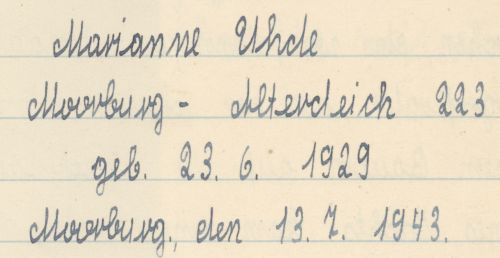 Marianne Uhde
Moorburg - Alterdeich 223
geb. 23. 6. 1929
Moorburg, den 13. 7. 1943.